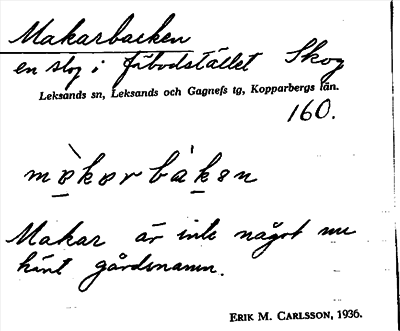 Makarbacken
en slog i fäbodstället Skog
Leksands sn, Leksands och Gagnefs tg, Kopparbergs län.
160.
mɵ̀kɵrbàkɵn
Makar är inte något nu
känt gårdsnamn.
ERIK M. CARLSSON, 1936.